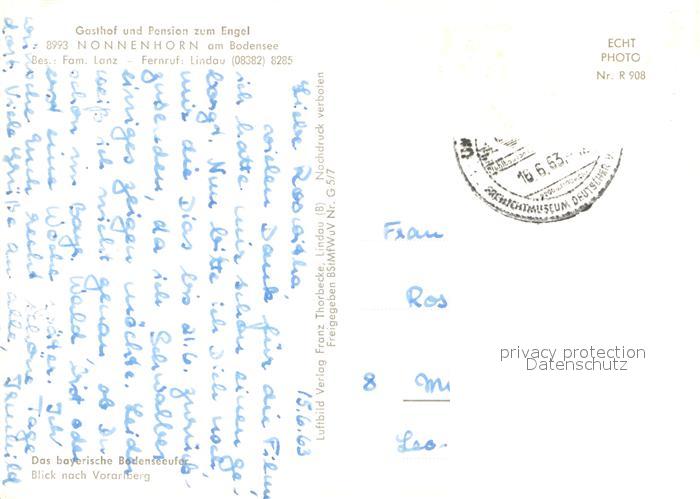 Gasthof und Pension zum Engel
8993 NONNENHORN am Bodensee
Bes.: Fam. Lanz - Fernruf: Lindau (08382) 8285
ECHT
PHOTO
Nr. R 908
15.6.63
Liebe Roswitha,
vielen Dank für die Filme
ich hatte mir schon einen ge-
borgt. Nun bitte ich Dich noch
mir die Dias bis 21.6. zurück-
zusenden, da ich Schwalber
einiges zeigen möchte. Leider
weiß ich nicht genau ob Du
schon im Bayr. Wald bist oder
erst eine Woche später. Ich
wünsche Euch recht schöne Tage
dort. Viele Grüße an alle,
Luftbild Verlag Franz Thorbecke, Lindau (B) - Nachdruck verboten
Freigegeben BStMfWuV Nr. G 5/7
16.6.63
DEUTSCHER
Frau
Ros
8 Mü
Leo
privacy protection
Datenschutz
Das bayerische Bodenseeufer
Blick nach Vorarlberg